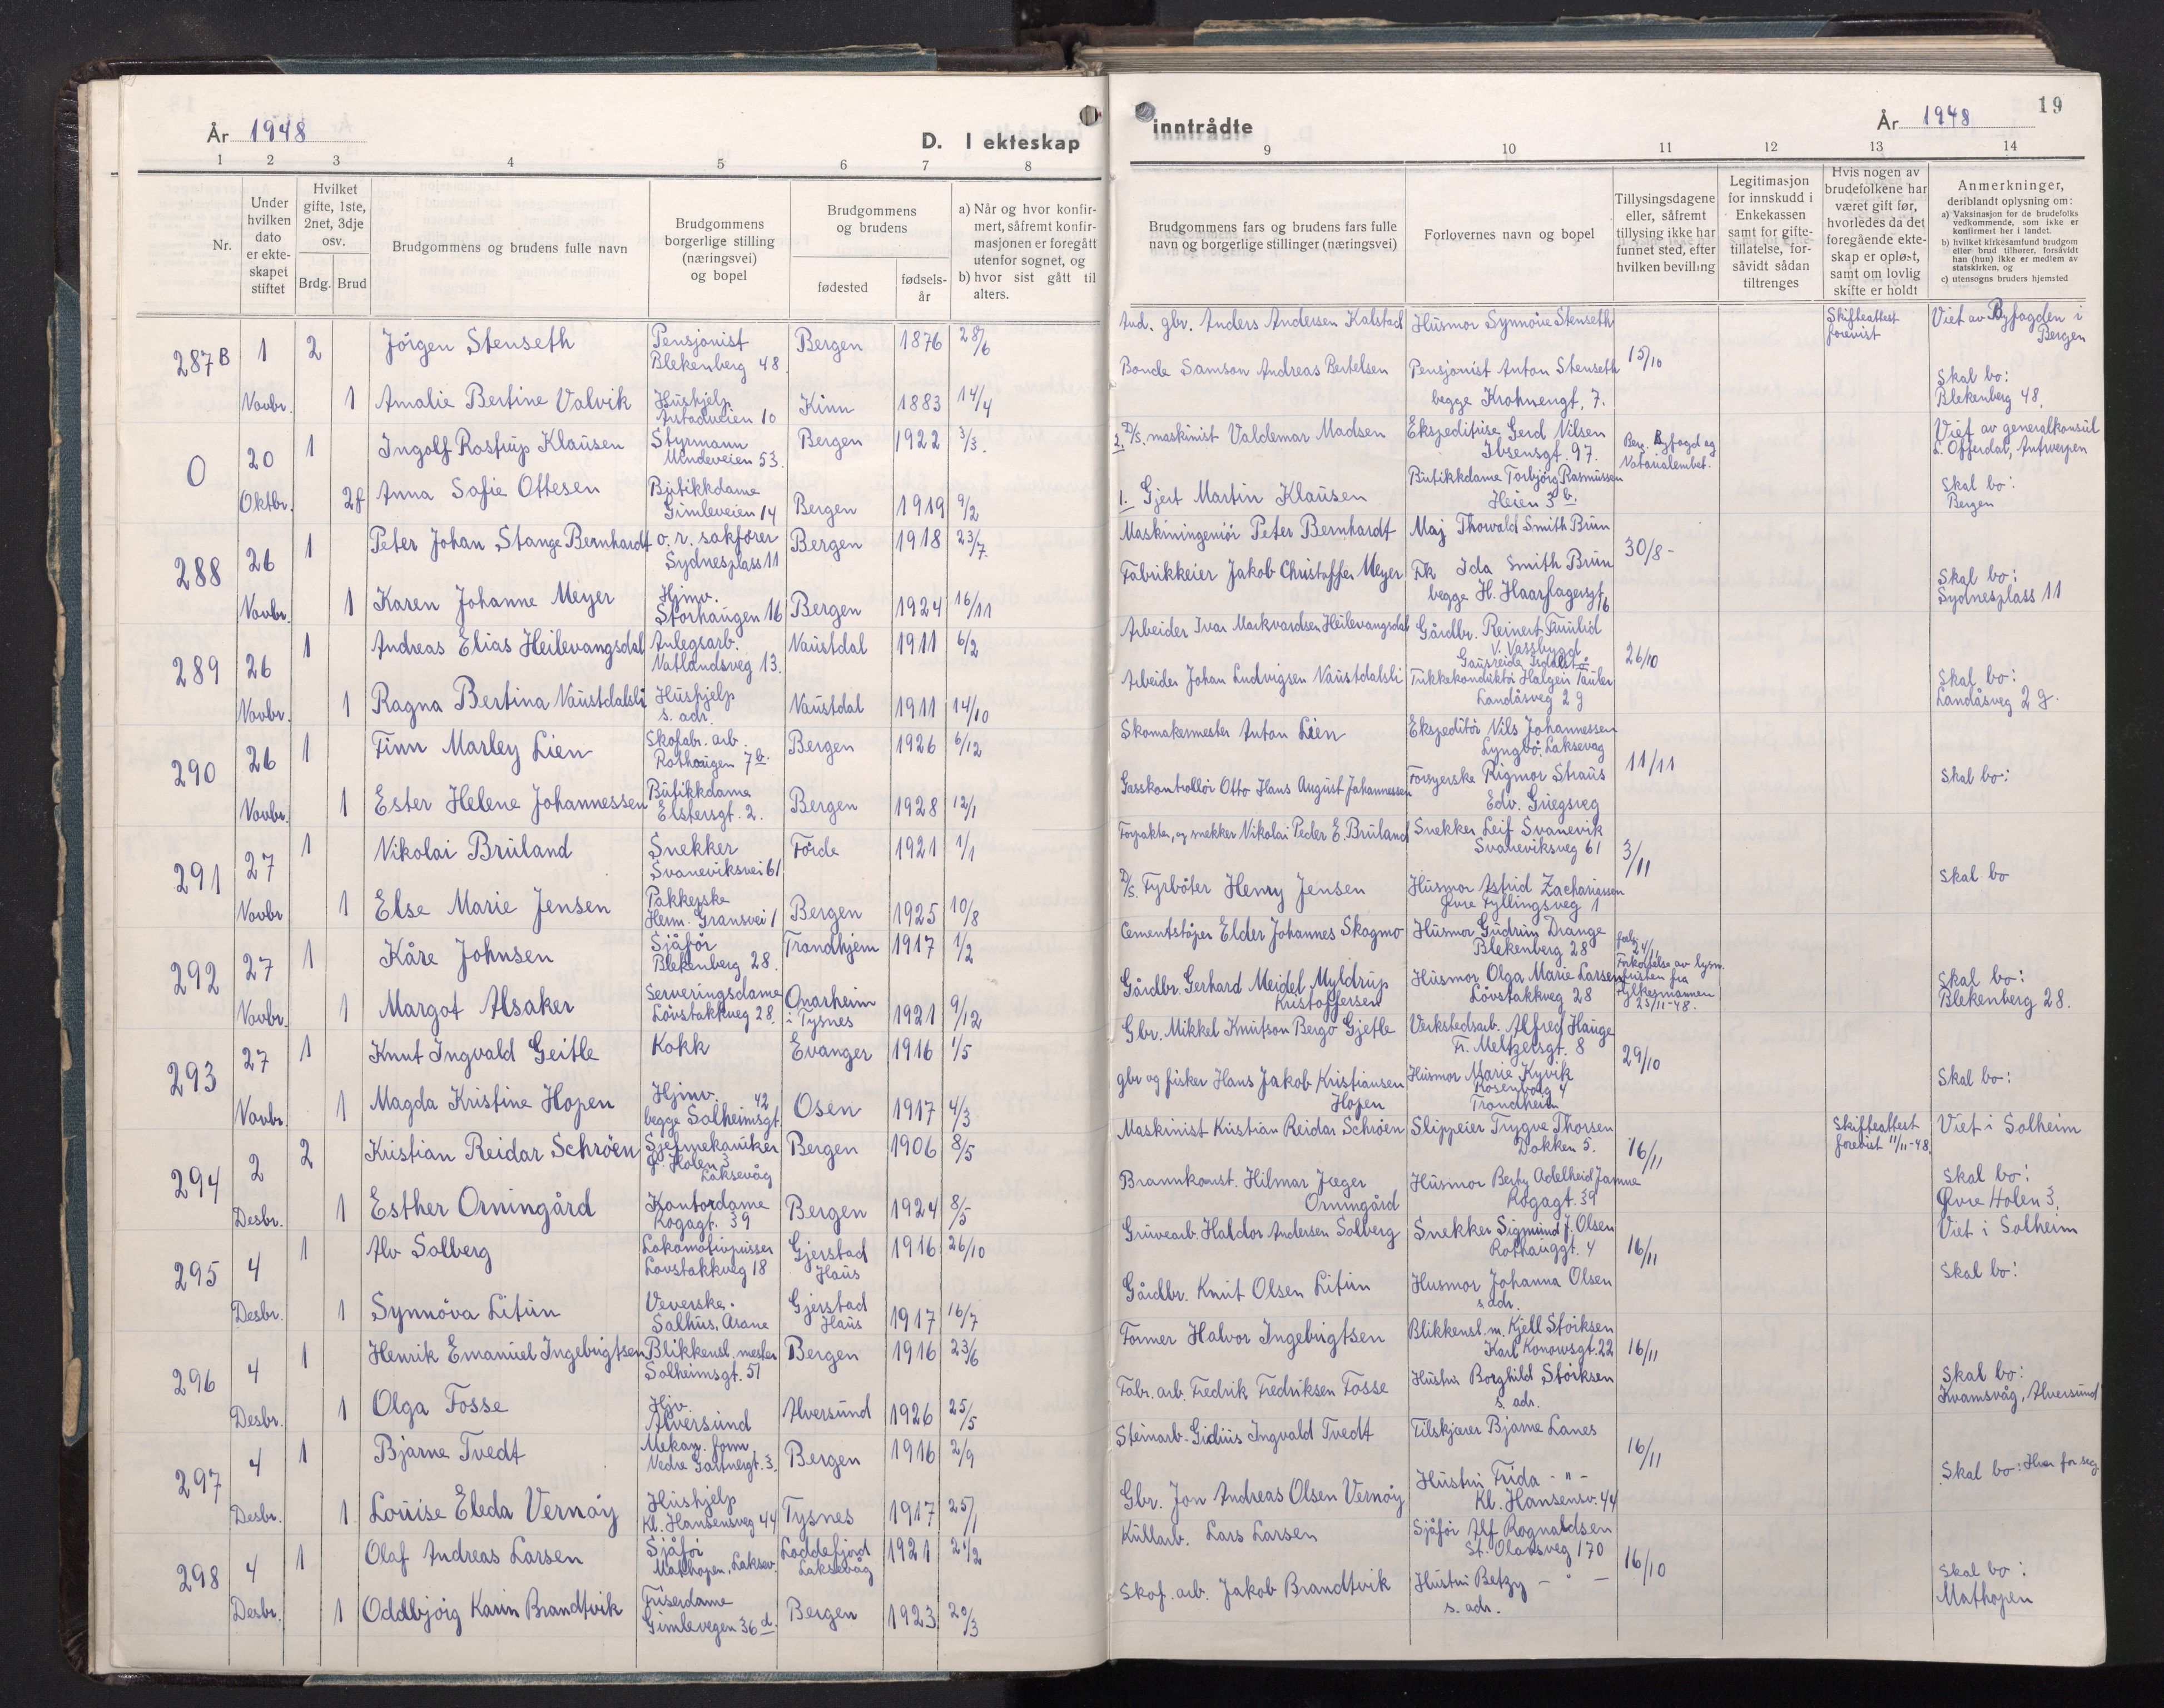 År 1948
D. I ekteskap
inntrådte
År 1948
19
1 2 3 4 5 6 7 8
9 10 11 12 13 14
Nr.
Under hvilken dato er ekteskapet stiftet
Hvilket gifte, 1ste, 2net, 3dje osv.
Brdg. Brud
Brudgommens og brudens fulle navn
Brudgommens borgerlige stilling (næringsvei) og bopel
Brudgommens og brudens
fødested
fødselsår
a) Når og hvor konfirmert, såfremt konfirmasjonen er foregått utenfor sognet, og
b) hvor sist gått til alters.
Brudgommens fars og brudens fars fulle navn og borgerlige stillinger (næringsvei)
Forlovernes navn og bopel
Tillysingsdagene eller, såfremt tillysing ikke har funnet sted, efter hvilken bevilling
Legitimasjon for innskudd i Enkekassen samt for giftetillatelse, forsåvidt sådan tiltrenges
Hvis nogen av brudefolkene har været gift før, hvorledes da det foregående ekteskap er opløst, samt om lovlig skifte er holdt
Anmerkninger,
deriblandt oplysning om:
a) Vaksinasjon for de brudefolks vedkommende, som ikke er konfirmert her i landet.
b) hvilket kirkesamfund brudgom eller brud tilhører, forsåvidt han (hun) ikke er medlem av statskirken, og
c) utensogns bruders hjemsted
287B 1 2 Jörgen Stenseth Pensjonist Blekenberg 48 Bergen 1876 28/6 And. gbr. Anders Andersen Kalstad Husmor Synnöve Stenseth 15/10 Skifteattest forevist Viet av Byfogden i Bergen
Novbr. 1 Amalie Bertine Valvik Hushjelp 10 Kinn 1883 14/4 Bonde Samson Andreas Bertelsen Pensjonist Anton Stenseth begge Krohnengt. 7. Skal bo: Blekenberg 48.
0 20 1 Ingolf Rostrup Klausen Styrmann Mindeveien 53. Bergen 1922 3/3. 2. D/S. maskinist Valdemar Madsen Ekspeditrise Gerd Nilsen Ibsensgt. 97. Berg. Byfogd og Notarialembet. Viet av generalkonsul L. Offerdal, Antwerpen
Oktbr. 2f Anna Sofie Ottesen Butikkdame Gimleveien 14 Bergen 1919 9/2 1. Gjert Martin Klausen Butikkdame Torbjörg Rasmussen Heien 3 b. Skal bo: Bergen
288 26 1 Peter Johan Stange Bernhardt o. r. sakförer Sydnesplass 11 Bergen 1918 23/7 Maskiningeniör Peter Bernhardt Maj Thorvald Smith Brun 30/8 -
Novbr. 1 Karen Johanne Meyer Hjmv. Storhaugen 16 Bergen 1924 16/11 Fabrikkeier Jakob Christoffer Meyer Frk Ida Smith Brun begge H. Haarfagersgt. 16 Skal bo: Sydnesplass 11
289 26 1 Andreas Elias Heilevangsdal Anlegsarb. Natlandsveg 13. Naustdal 1911 6/2 Arbeider Ivar Markvardsen Heilevangsdal Gårdbr. Reinert Furulid v. Vassbygd 26/10
Novbr. 1 Ragna Bertina Naustdalsli Hushjelp s. adr. Naustdal 1911 14/10 Arbeider Johan Ludvigsen Naustdalsli Trikkekonduktör Halgeir Landåsveg 2 g Skal bo: Landåsveg 2 g.
290 26 1 Finn Marley Lien Skofabr. arb. Rothaugen 7 b. Bergen 1926 6/12 Skomakermester Anton Lien Ekspeditör Nils Johannessen Lyngbö, Laksevåg 11/11
Novbr. 1 Ester Helene Johannessen Butikkdame Elstersgt. 2. Bergen 1928 12/1 Gasskontrollör Otto Hans August Johannessen Forsyerske Rigmor Straus Edv. Griegsveg Skal bo:
291 27 1 Nikolai Bruland Snekker Svaneviksvei 61 Förde 1921 1/1 Forpakter, og snekker Nikolai Peder E. Bruland Snekker Leif Svanevik Svaneviksveg 61 3/11
Novbr 1 Else Marie Jensen Pakkerske Herm. Gransvei 1 Bergen 1925 10/8 D/S. Fyrböter Henry Jensen Husmor Astrid Zachariassen Övre Fyllingsveg 1 Skal bo
292 27 1 Kåre Johnsen Sjåför Blekenberg 28. Trondhjem 1917 1/2 Cementstöper Elder Johannes Skogmo Husmor Gudrun Drange Blekenberg 28 24/11 Forkortelse av lysn. fristen fra Fylkesmannen 25/11-48.
Novbr. 1 Margot Alsaker Serveringsdame Lövstakkveg 28. Onarheim i Tysnes 1921 9/12 Gårdbr. Gerhard Meidel Myldrup Kristoffersen Husmor Olga Marie Larsen Lövstakkveg 28 Skal bo: Blekenberg 28.
293 27 1 Knut Ingvald Geitle Kokk Evanger 1916 1/5 Gbr. Mikkel Knutson Bergo Gjetle Verkstedsarb. Alfred Hauge Fr. Meltzersgt. 8 29/10
Novbr. 1 Magda Kristine Hopen Hjmv. begge Solheimsgt. 42 Osen 1917 4/3 gbr og fisker Hans Jakob Kristiansen Hopen Husmor Marie Kyvik Rosenborg 4 Trondheim Skal bo:
294 2 2 Kristian Reidar Schröen Sjefmekaniker Ø. Holen 3 Laksevåg Bergen 1906 8/5 Maskinist Kristian Reidar Schröen Slippeier Trygve Thorsen Dokken 5. 16/11 Skifteattest forevist 11/11-48. Viet i Solheim
Desbr. 1 Esther Orningård Kontordame Rogagt. 39 Bergen 1924 8/5 Brannkonst. Hilmar Jæger Orningård Husmor Adelheid Jamne Rogagt. 39 Skal bo: Øvre Holen 3.
295 4 1 Alv Solberg Lokomotivpusser Lövstakkveg 18 Gjerstad Haus 1916 26/10 Gruvearb. Haldor Andersen Solberg Snekker Sigmund J. Olsen Rothauggt. 4 16/11 Viet i Solheim
Desbr. 1 Synnöva Litun Veverske. Salhus, Åsane Gjerstad Haus 1917 16/7 Gårdbr. Knut Olsen Litun Husmor Johanna Olsen s. adr. Skal bo:
296 4 1 Henrik Emanuel Ingebrigtsen Blikkensl. mester Solheimsgt. 51 Bergen 1916 23/6 Former Halvor Ingebrigtsen Blikkensl. m. Kjell Störksen Karl Konowsgt. 22 16/11
Desbr. 1 Olga Fosse Hjv. Alversund Alversund 1926 25/5 Fabr. arb. Fredrik Fredriksen Fosse Hustru Borghild Störksen s. adr. Skal bo: Kvamsvåg, Alversund
297 4 1 Bjarne Tvedt Mekan. form Nedre Gartnergt. 3. Bergen 1916 2/9 Steinarb. Gidius Ingvald Tvedt Tilskjærer Bjarne Lanes 16/11
Desbr. 1 Louise Eleda Vernöy Hushjelp Kl. Hansensveg 44 Tysnes 1917 25/1 Gbr. Jon Andreas Olsen Vernöy Hustru Frida - " - Kl. Hansensv. 44 Skal bo: Hver for seg
298 4 1 Olaf Andreas Larsen Sjåför Mathopen, Laksev. Loddefjord Laksevåg 1921 Kullarb. Lars Larsen Sjåför Alf Rognaldsen St. Olavsveg 170 16/10
Desbr. 1 Oddbjörg Karin Brandtvik Friserdame Gimlevegen 36 d. Bergen 1923 20/3 Skof. arb. Jakob Brandtvik Hustru Betzy - " - s. adr. Skal bo: Mathopen